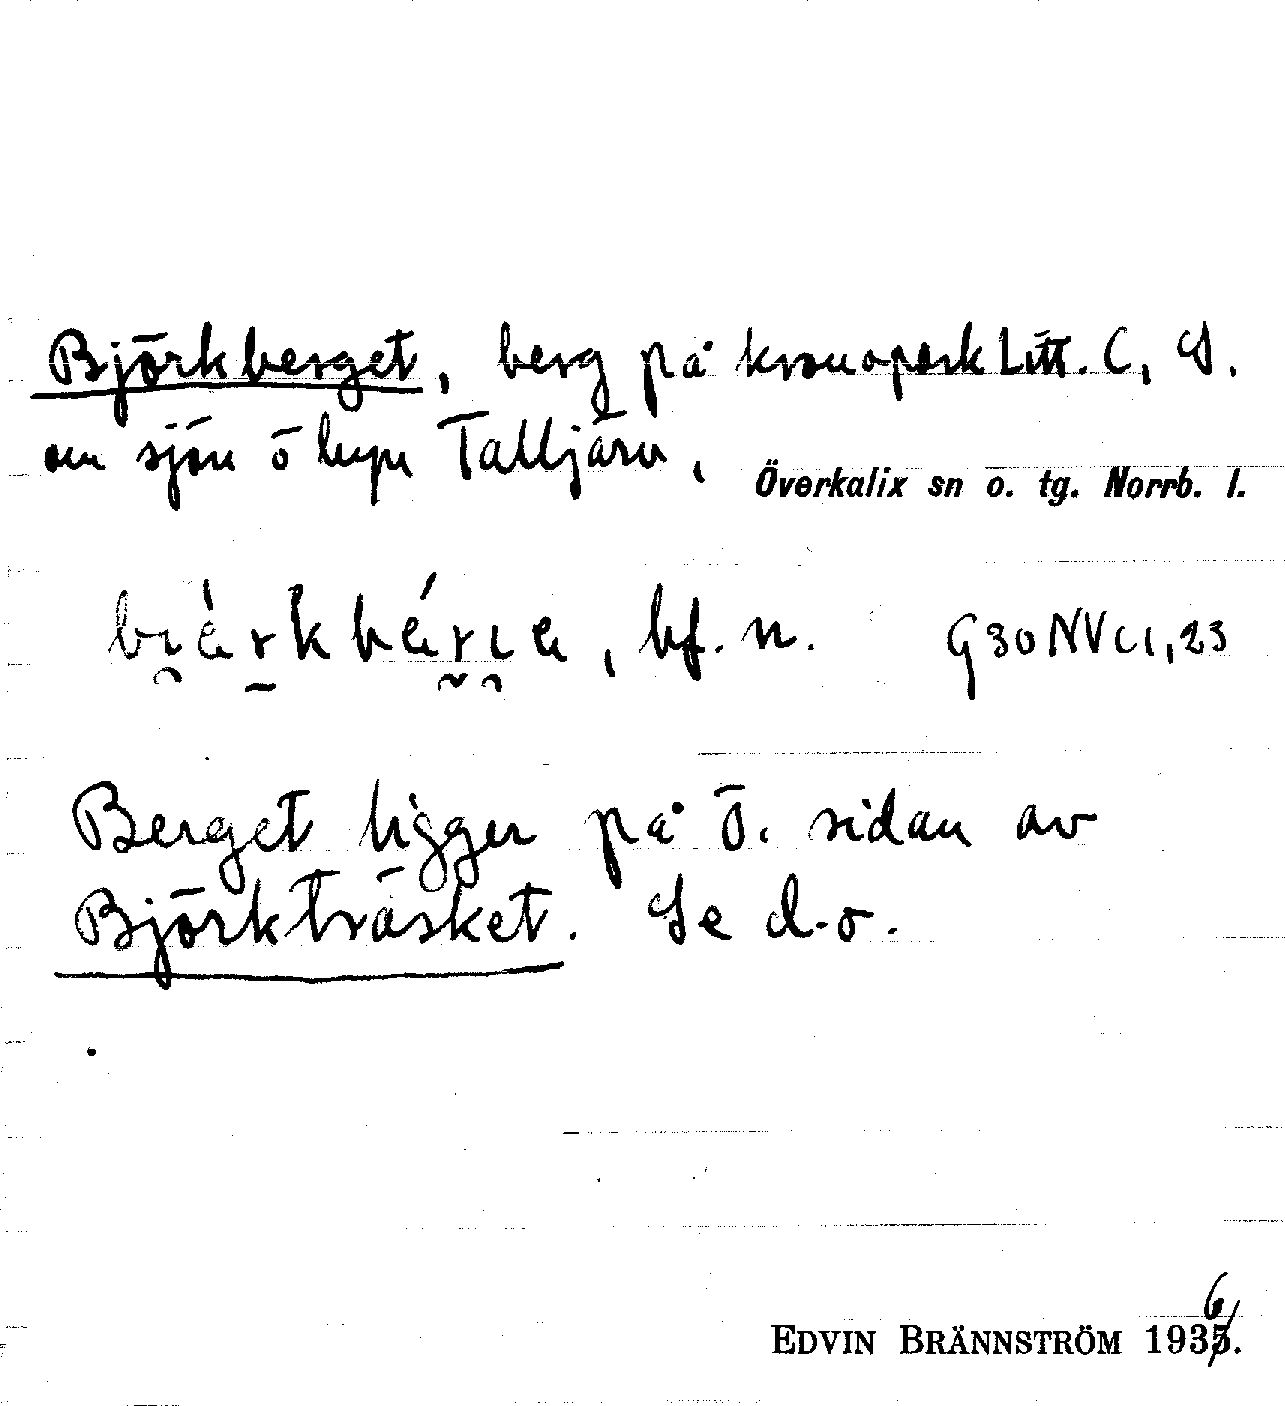 Björkberget, berg på kronopark Litt. C, S.
om sjön Talljärv,
Överkalix sn o. tg. Norrb. l.
bf. n. G30NV c1,23
Berget ligger på Ö. sidan av
Björkträsket. Se d.o.
EDVIN BRÄNNSTRÖM 1936.